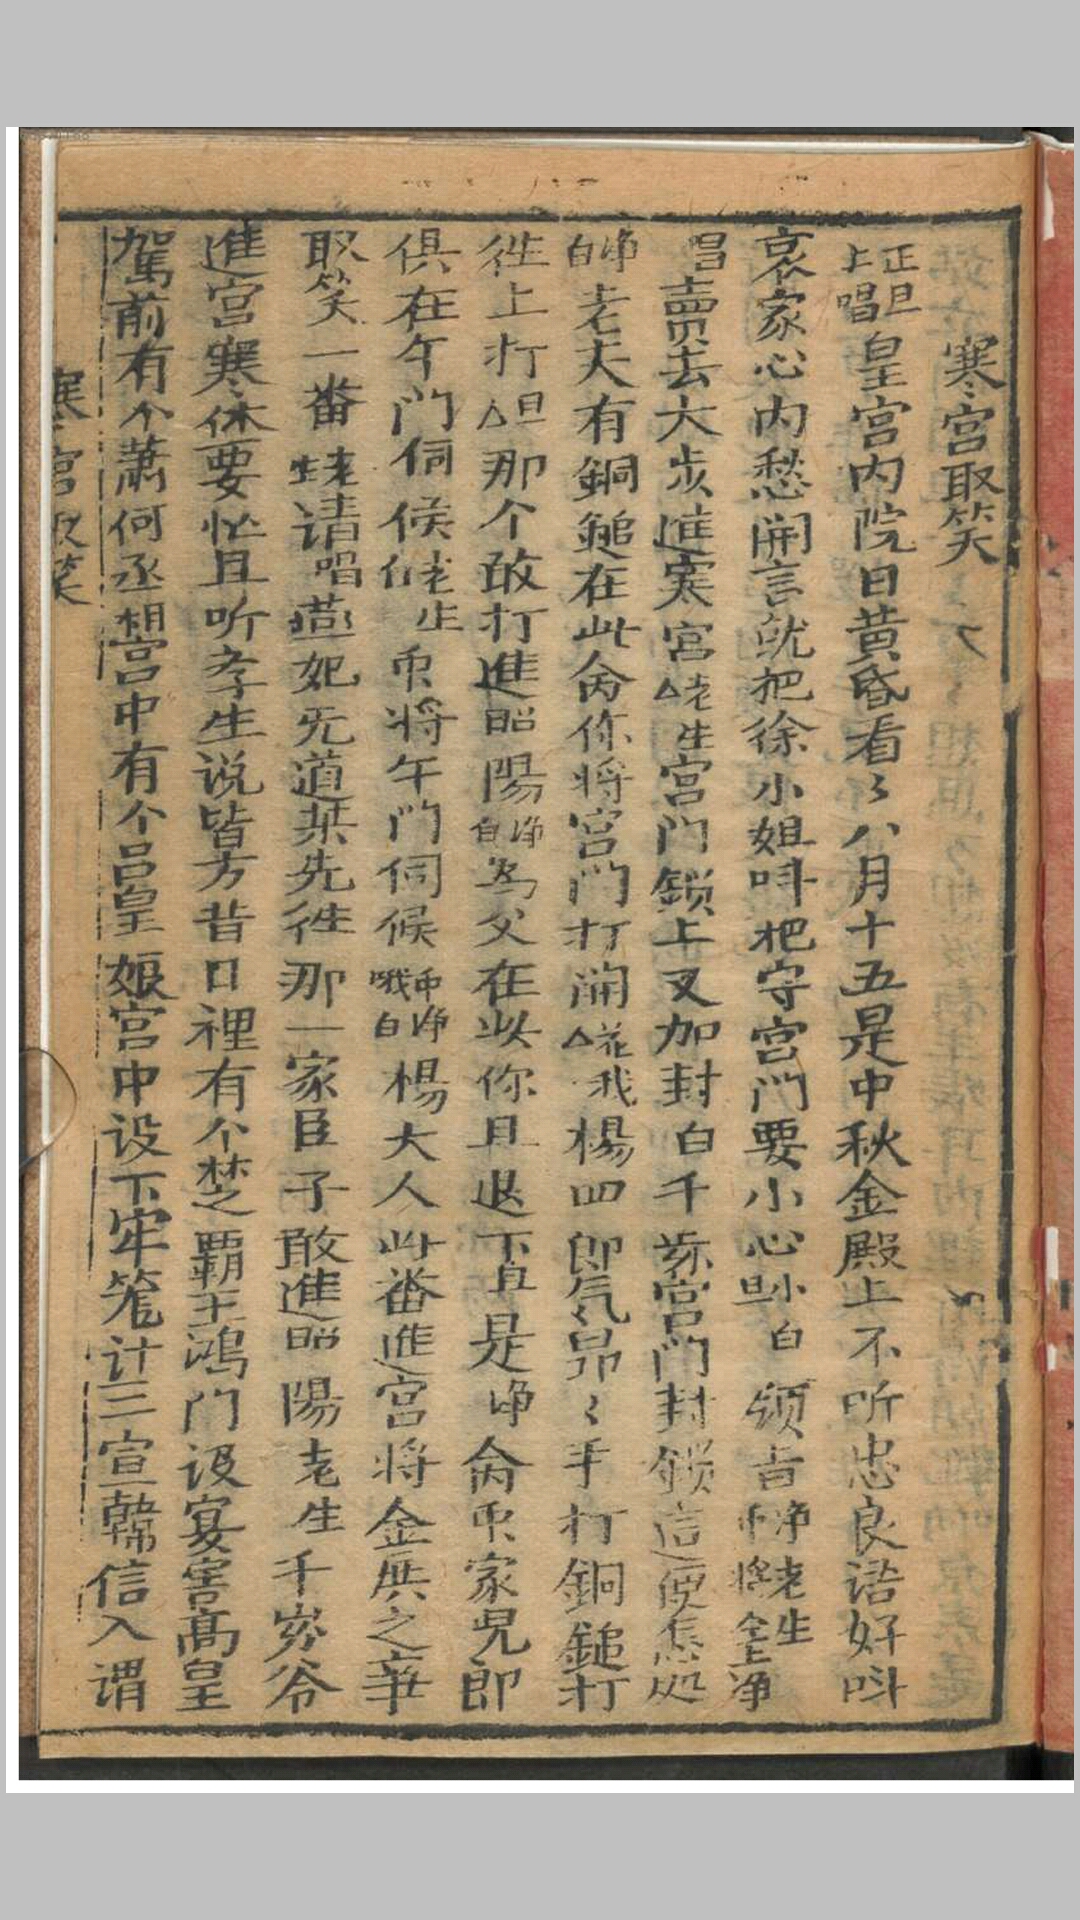 寒宫取笑
正旦上唱皇宫内院日黄昏看〻八月十五是中秋金殿上不听忠良语好呌
哀家心内愁開言就把徐小姐呌把守宫门要小心旦小白领旨净老生净
唱賣去大步進寒宫老生宫门鎖上又加封白千岁宫门封鎖這便怎处
净白老夫有銅鎚在此与你将宫门打開我楊四郎气昂〻手打銅鎚打
徃上打旦那个敢打進昭陽净白為父在此你且退下旦是净家児郎
俱在午门伺候老生将午门伺候净白楊大人此番進宫将金之事
取笑一番老请唱妃无道桀先徃那一家臣子敢進昭陽老生千岁爷
進宫寒休要忙且听孝生说皆方昔日裡有个楚霸王鴻门设宴害高皇
駕前有个蕭何丞相宫中有个吕皇娘宫中设下牢笼计三宣韓信入谓
寒宫取笑